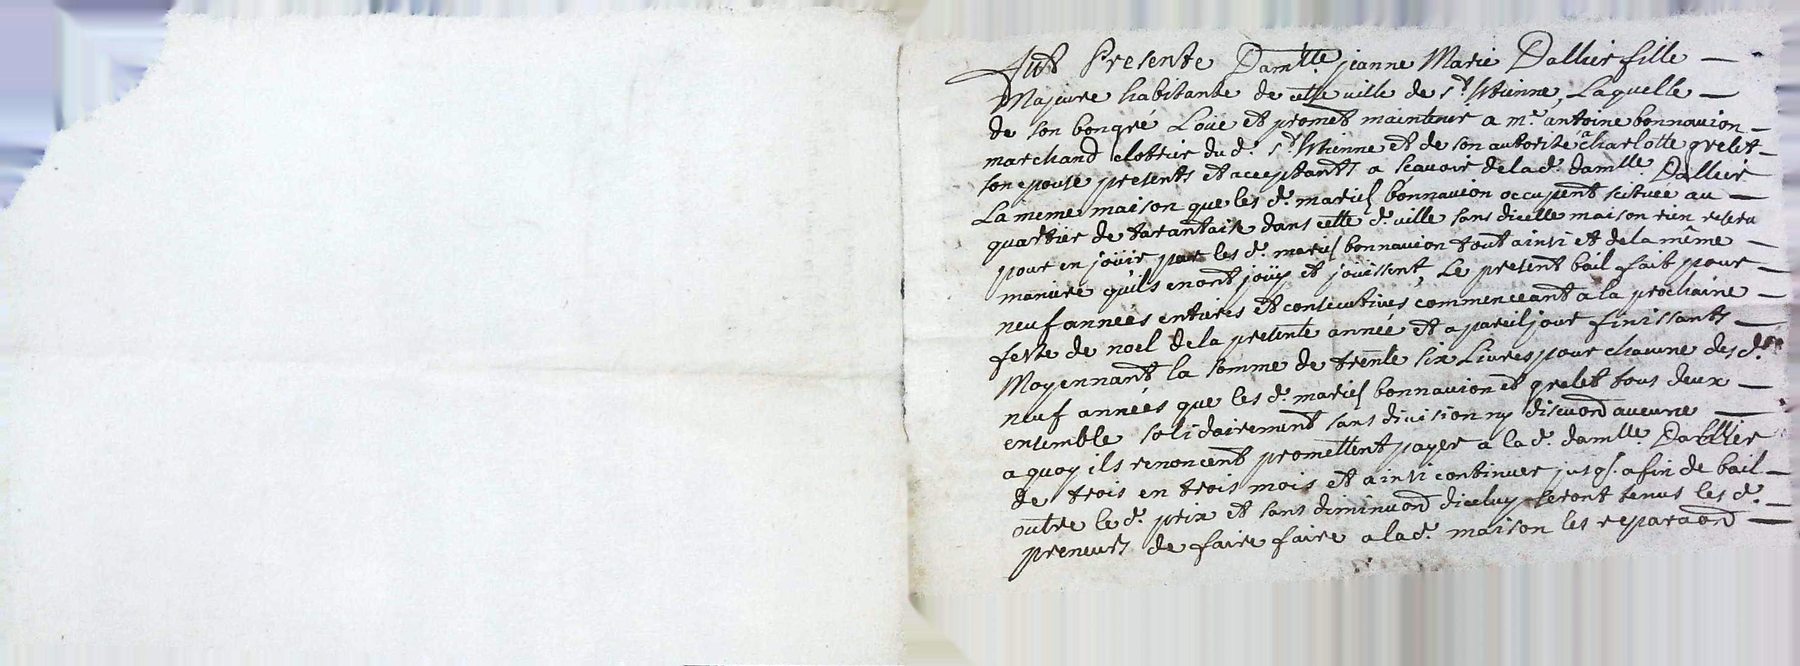 Fut Presente Dam.lle jeanne Marie Dallier fille
Majeure habitante de cette ville de s.t Etienne, Laquelle
de son bongré Loüe et promet maintenir a m.r antoine bonnavion
marchand clottrier du d. s.t Etienne et de son autorité a charlotte grelet
son epouse presents et acceptants a scavoir de la d. damlle. Dallier
La meme maison que les d. mariés bonnavion occupent scituée au
quartier de tarantaise dans cette d. ville sans dicelle maison rien reserver
pour en joüir par les d. mariés bonnavion tout ainsi et de la même
maniere quils en ont joüy et jouissent, Le present bail fait pour
neuf années entieres et consecutives, commenceant a la prochaine
feste de noel de la presente année et a pareil jour finissants
Moyennant la somme de trente six Livres pour chacune des d.
neuf années que les d. mariés bonnavion et grelet tous deux
ensemble solidairement sans division ny discuon aucune
a quoy ils renoncent promettent payer a la d. damlle. Dallier
de trois en trois mois et ainsi continuer jusq. a fin de bail
outre le d. prix et sans diminuon diceluy seront tenus les d.
preneurs de faire faire a la d. maison les reparaons